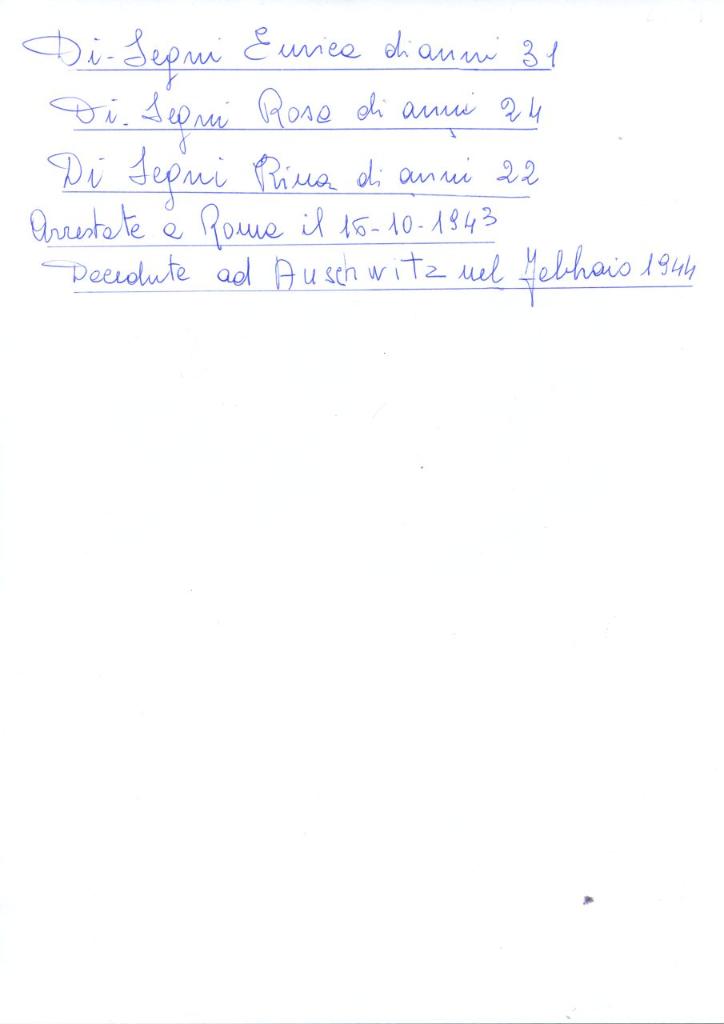 Di-Segni Enrica di anni 31
Di-Segni Rosa di anni 24
Di Segni Rina di anni 22
Arrestate a Roma il 16-10-1943
Decedute ad Auschwitz nel Febbraio 1944